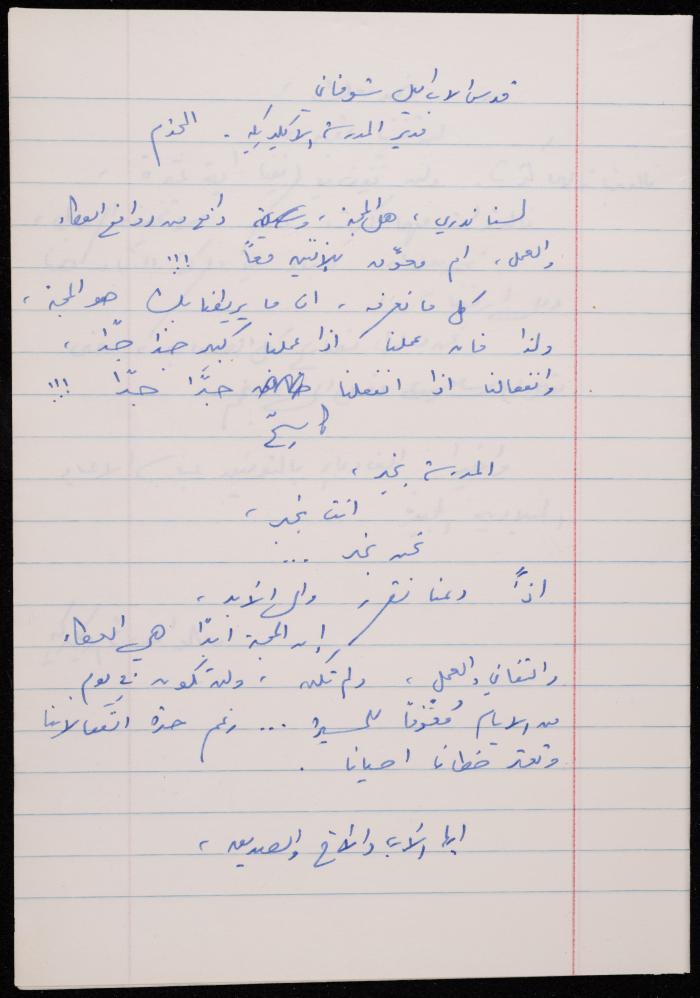 قدس الاب اميل شوفاني
مدير المدرسة الاكليريكية . المحترم
لسنا ندري ، هل المحبة ، دافع من دوافع العطاء
والعمل ، ام معوّق للإثنين معاً !!!
كل ما نعرفه ، ان ما يربطنا بك هو المحبة ،
ولذا فان عملنا اذا عملنا كبير جدًا جدًا ،
وانفعالنا اذا انفعلنا جدًا جدًا !!!
المدرسة بخير ،
انت بخير ،
نحن بخير ...
اذاً دعنا نقرر والى الأبد ،
إن المحبة ابدًا هي العطاء
والتفاني والعمل ، ولم تكن ، ولن تكون في يوم
من الايام مُعَوِّقاً للمسيرة ... رغم حدة انفعالاتنا
وتعثر خطانا احيانا .
ايها الأب والأخ والصديق ،